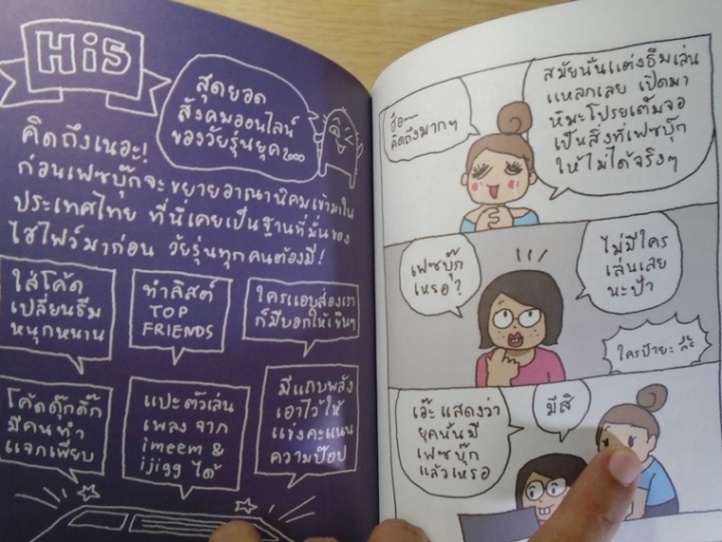 Hi5
สุดยอด
สังคมออนไลน์
ของวัยรุ่นยุค 2000
คิดถึงเนอะ!
ก่อนเฟซบุ๊กจะขยายอาณานิคมเข้ามาใน
ประเทศไทย ที่นี่เคยเป็นฐานที่มั่นของ
ไฮไฟว์มาก่อน วัยรุ่นทุกคนต้องมี!
ใส่โค้ด
เปลี่ยนธีม
หนุกหนาน
ทำลิสต์
TOP
FRIENDS
ใครแอบส่องเรา
ก็มีบอกให้เขินๆ
โค้ดดุ๊กดิ๊ก
มีคนทำ
แจกเพียบ
แปะตัวเล่น
เพลง จาก
imeem &
ijigg ได้
มีแถบพลัง
เอาไว้ให้
แข่งคะแนน
ความป๊อป
ฮือ~~
คิดถึงมากๆ
สมัยนั้นแต่งธีมเล่น
แหลกเลย เปิดมา
หิมะโปรยเต็มจอ
เป็นสิ่งที่เฟซบุ๊ก
ให้ไม่ได้จริงๆ
เฟซบุ๊ก
เหรอ?
ไม่มีใคร
เล่นเลย
นะป้า
ใครป้ายะ
เอ๊ะ แสดงว่า
ยุคนั้นมี
เฟซบุ๊ก
แล้วเหรอ
มีสิ